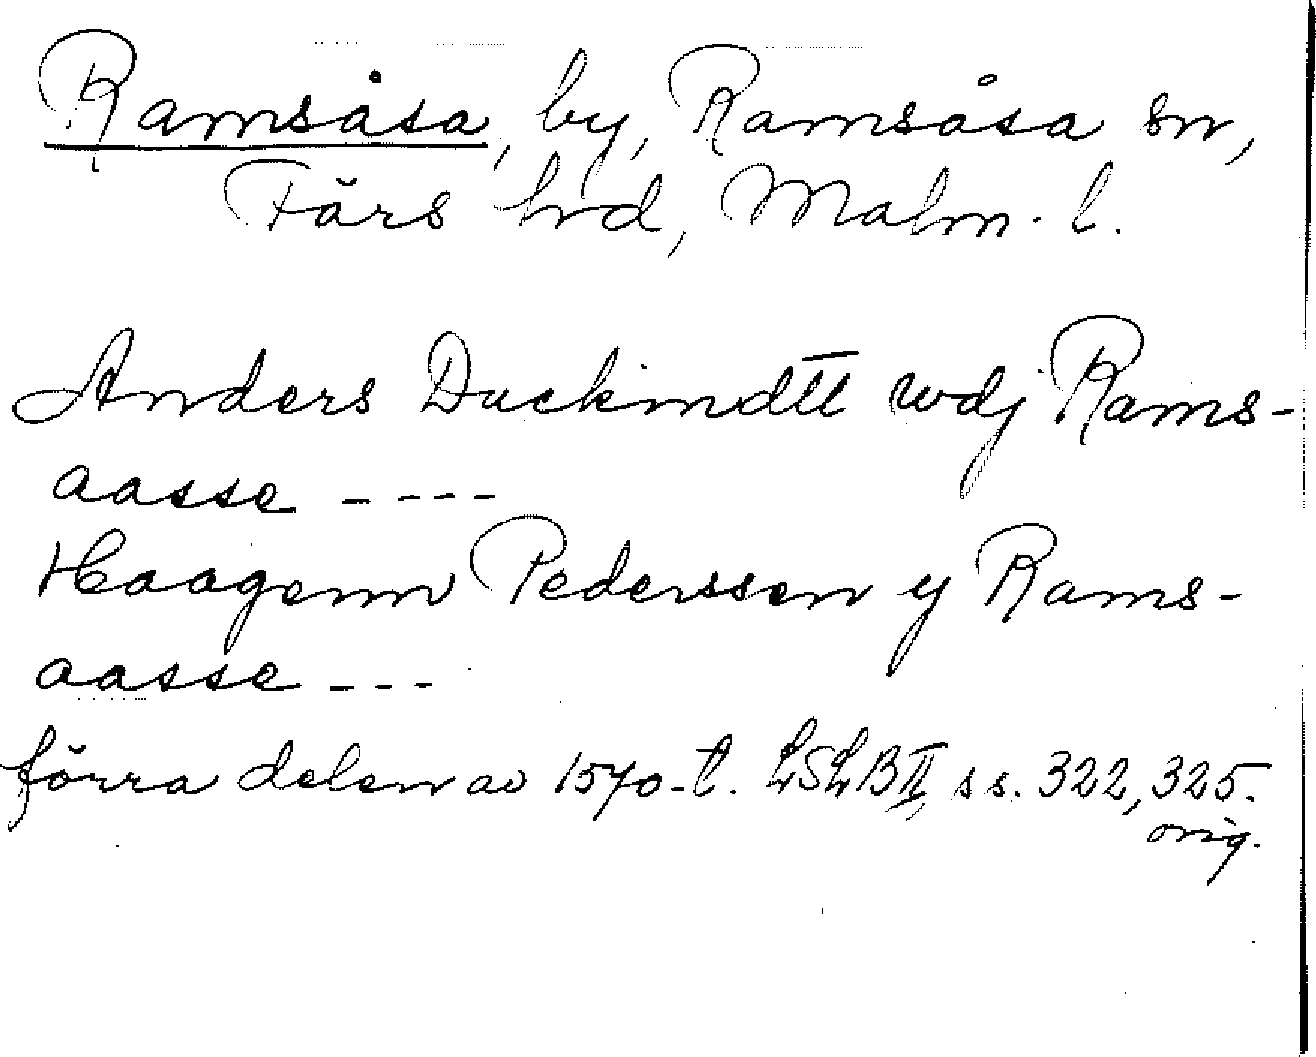 Ramsåsa, by, Ramsåsa sn,
Färs hrd, Malm. l.
Anders Duckmdtt wdj Rams-
aasse ----
Haagenn Pederssen y Rams-
aasse ---
förra delen av 1570-t. LSLB II, ss. 322, 325.
orig.